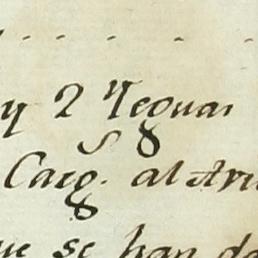 y 2 Yeguas
Carg. al Arri
ue se han da